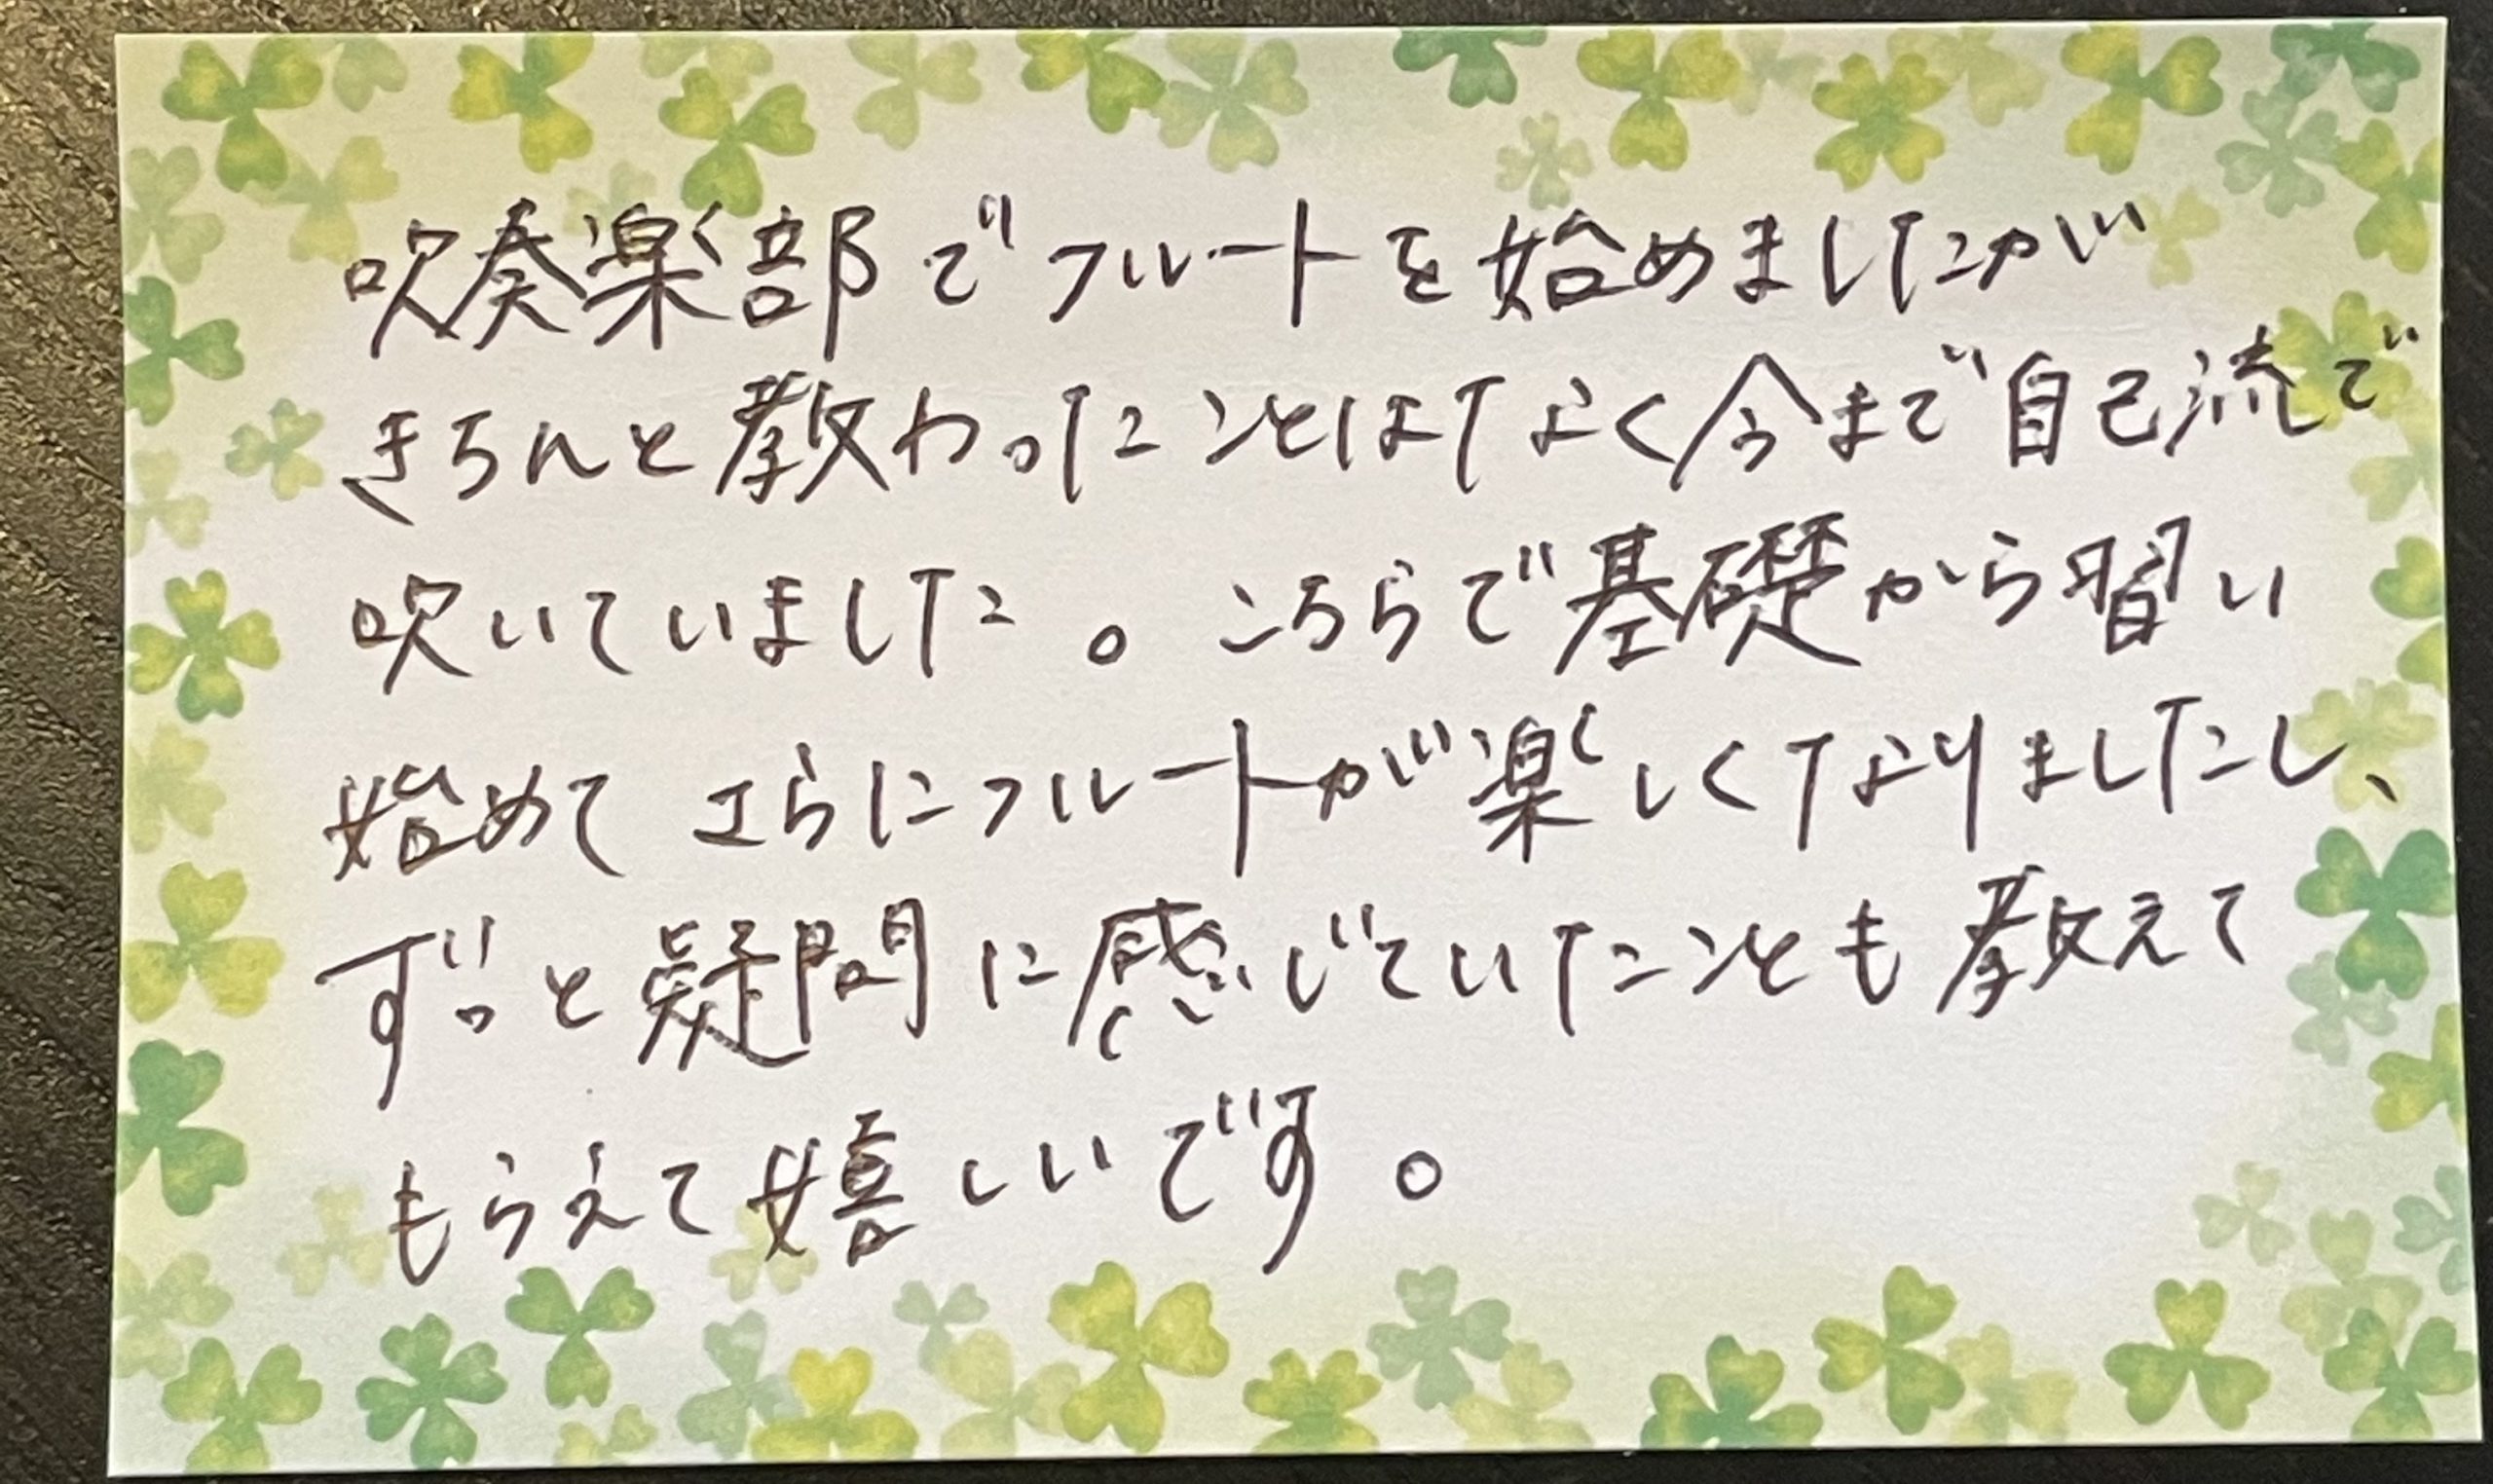 吹奏楽部でフルートを始めましたが
きちんと教わったことはなく今まで自己流で
吹いていました。こちらで基礎から習い
始めてさらにフルートが楽しくなりましたし、
ずっと疑問に感じていたことも教えて
もらえて嬉しいです。